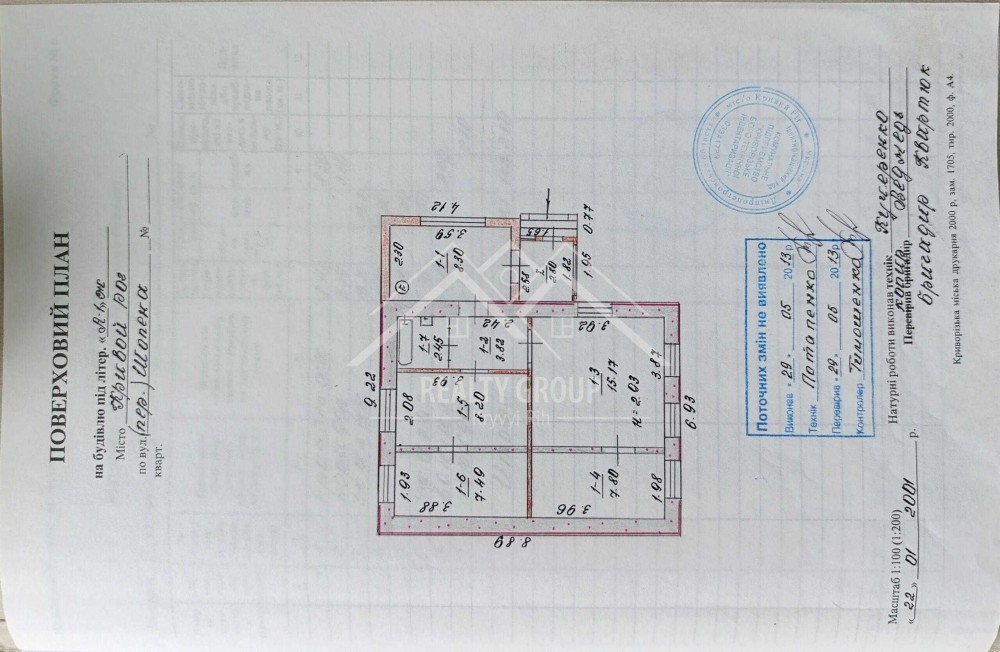 ПОВЕРХОВИЙ ПЛАН
на будівлю під літер. «А-1, ож
Місто Кривой рог
по вул. (пер.) Шопена № 
кварт.
4.12
3.59
2.30
1-1
8.30
К
1.65
0.77
I
2.80
2.58
1.82
1.95
9.22
1-7
2.45
2.42
1-2
3.82
3.92
3.93
2.08
1-5
8.20
1-3
15.17
H = 2.03
3.87
6.93
1.93
1-6
7.49
3.88
1-4
7.80
3.96
1.98
8.89
REALTY GROUP
Kryvyi Rih
Поточних змін не виявлено
Виконав «29» 05 2013 р.
Технік Потапенко
Перевірив «29» 05 2013 р.
Контролер Тимошенко
Масштаб 1:100 (1:200)
«22» 01 2001 р.
Натурні роботи виконав технік Кучеренко
Перевірив бригадир
бригадир Квартюк
Криворізька міська друкарня 2000 р, зам. 1705, тир. 2000, ф. А4.